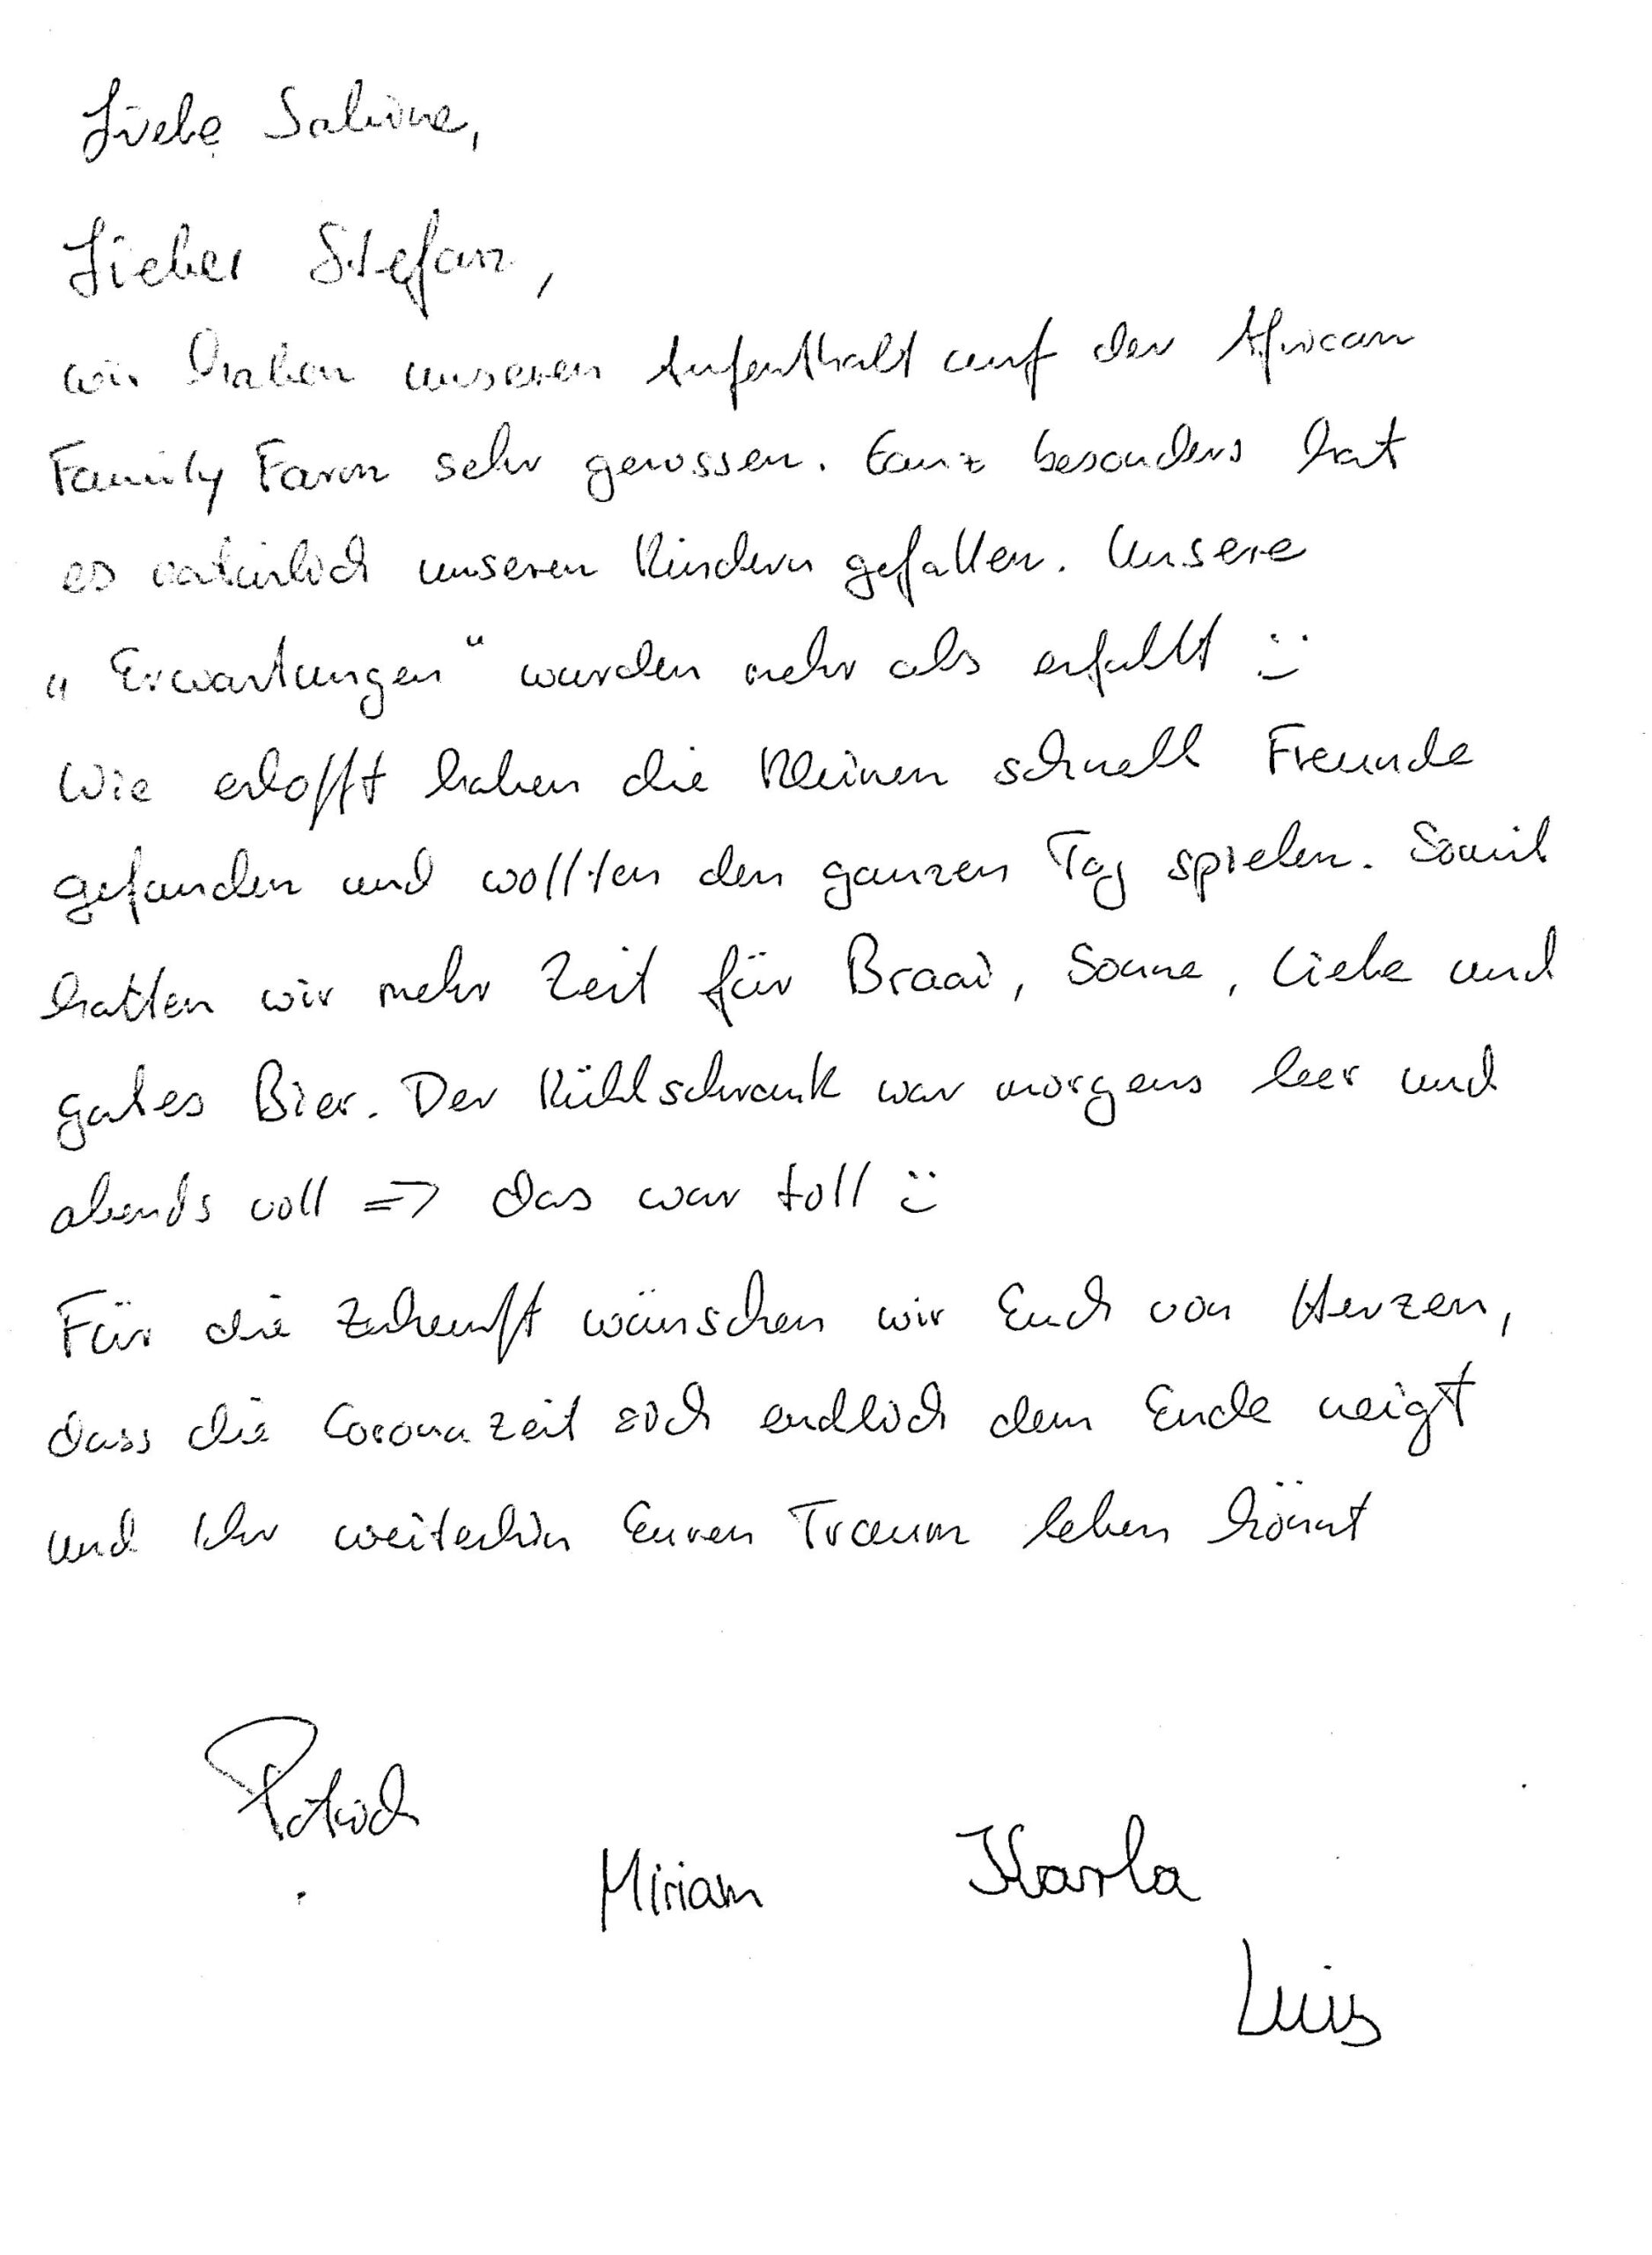 Liebe Sabine,
Lieber Stefan,
wir haben unseren Aufenthalt auf der African
Family Farm sehr genossen. Ganz besonders hat
es natürlich unseren Kindern gefallen. Unsere
„Erwartungen“ wurden mehr als erfüllt :)
Wie erhofft haben die Kleinen schnell Freunde
gefunden und wollten den ganzen Tag spielen. Somit
hatten wir mehr Zeit für Braai, Sonne, Liebe und
gutes Bier. Der Kühlschrank war morgens leer und
abends voll => das war toll :)
Für die Zukunft wünschen wir Euch von Herzen,
dass die Coronazeit sich endlich dem Ende neigt
und Ihr weiterhin Euren Traum leben könnt
Patrick
Miriam
Karla
Luis